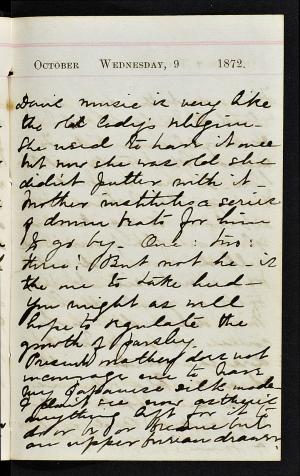 OCTOBER WEDNESDAY, 9 1872.
Dan's music is very like
the old lady's religion.
She used to have it once
but now she was old she
didn't putter with it
Mother institutes a series
of drum beats for him
to go by. One: two:
three! But not he - is
the one to take heed -
You might as well
hope to regulate the
growth of parsley.
mother does not
encourage me to have
my Japanese silk made
I don't see now
anything left for it to
do or be for but
an upper bureau drawer.